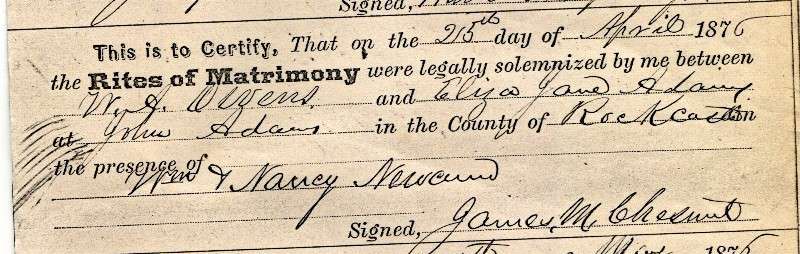 Signed,
This is to Certify, That on the 25th day of April 1876
the Rites of Matrimony were legally solemnized by me between
W. A. Owens and Eliza Jane Adams
at John Adams in the County of Rockcastle in
the presence of Wm & Nancy Newcum
Signed, James M. Chesnut
1876